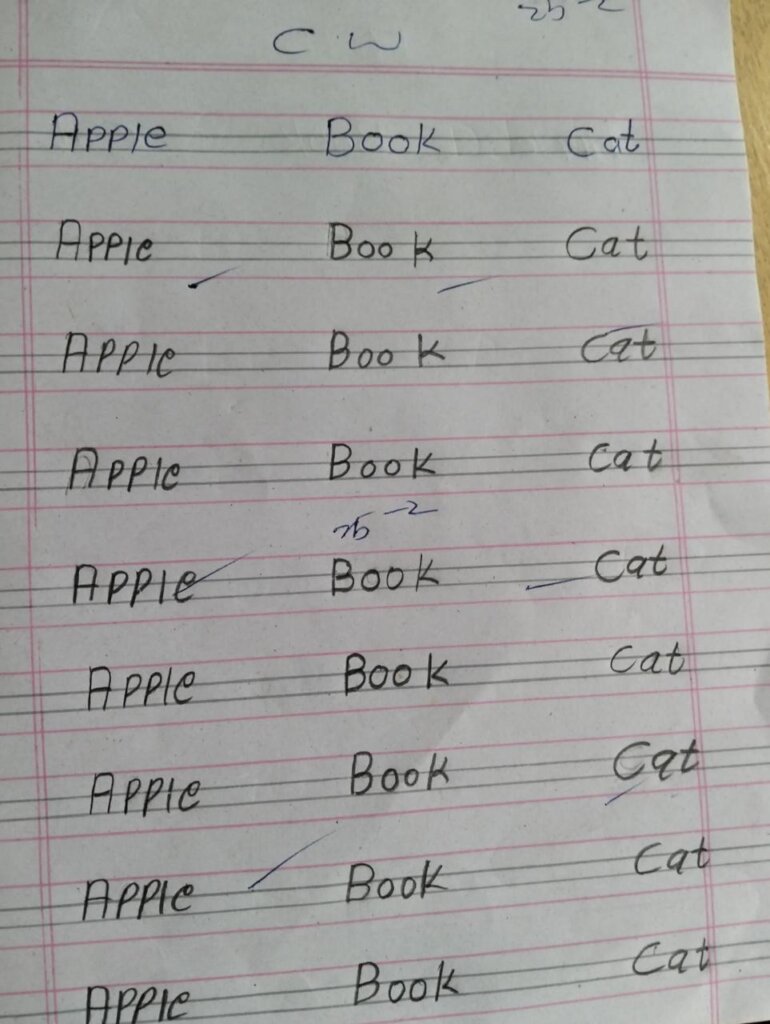 25-2
C W
Apple Book Cat
Apple Book Cat
Apple Book Cat
Apple Book Cat
25-2
Apple Book Cat
Apple Book Cat
Apple Book Cat
Apple Book Cat
Apple Book Cat